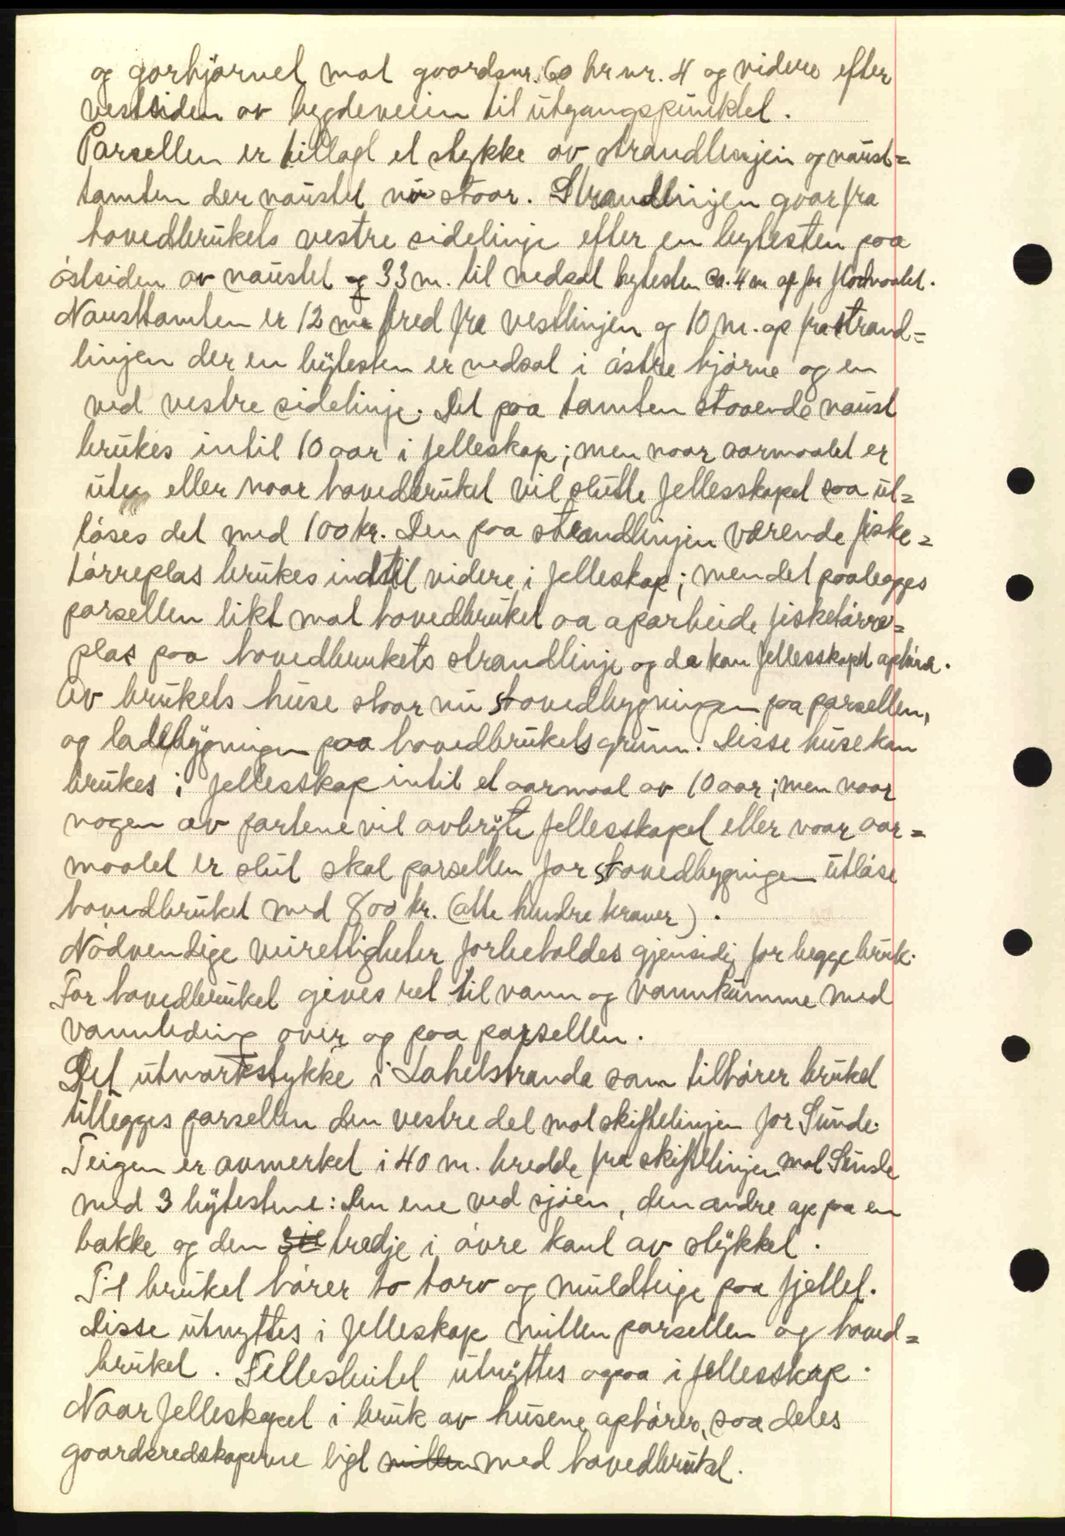 og gorhjørnet mot gaardsnr. 60 br nr. 4 og videre efter
vestsiden av bygdeveien til utgangspunktet.
Parsellen er tillagt et stykke av strandlinjen og naust=
tomten der naustet nu staar. Strandlinjen gaar fra
hovedbrukets vestre sidelinje efter en bytesten paa
østsiden av naustet og 33 m. til nedsat bytesten ca. 4 m op for flodmaalet.
Nausttomten er 12 m bred fra vestlinjen og 10 m. op fra strand=
linjen der en bytesten er nedsat i østre hjørne og en
ved vestre sidelinje. Det paa tomten staaende naust
brukes intil 10 aar i felleskap; men naar aarmaalet er
ute eller naar hovedbruket vil slutte fellesskapet saa ut=
løses det med 100 kr. Den paa strandlinjen værende fiske=
tørreplas brukes indtil videre i felleskap; men det paalegges
parsellen likt mot hovedbruket aa oparbeide fisketørre=
plas paa hovedbrukets strandlinje og da kan fellesskapet ophøre.
Av brukets huse staar nu stovedbygningen paa parsellen,
og ladebygningen paa hovedbrukets grunn. Disse huse kan
brukes i fellesskap intil et aarmaal av 10 aar; men naar
nogen av partene vil avbryte fellesskapet eller naar aar=
maalet er slut skal parsellen for stovedbygningen utløse
hovedbruket med 800 kr. (Otte hundre kroner).
Nødvendige veirettigheter forbeholdes gjensidig for begge bruk.
For hovedbruket gives ret til vann og vannkumme med
vannleding over og paa parsellen.
Det utmarkstykke i Lahelstranda som tilhører bruket
tillegges parsellen den vestre del mot skiftelinjen for Sunde.
Teigen er avmerket i 40 m. bredde fra skiftelinjen mot Sunde
med 3 bytestene: Den ene ved sjøen, den andre op paa en
bakke og den tredje i øvre kant av stykket.
Til bruket hører to torv og muldteige paa fjellet.
Disse utnyttes i felleskap millem parsellen og hoved=
bruket. Fellesbeitet utnyttes ogsaa i fellesskap.
Naar felleskapet i bruk av husene ophører, saa deles
gaardsredskaperne ligt millem med hovedbruket.